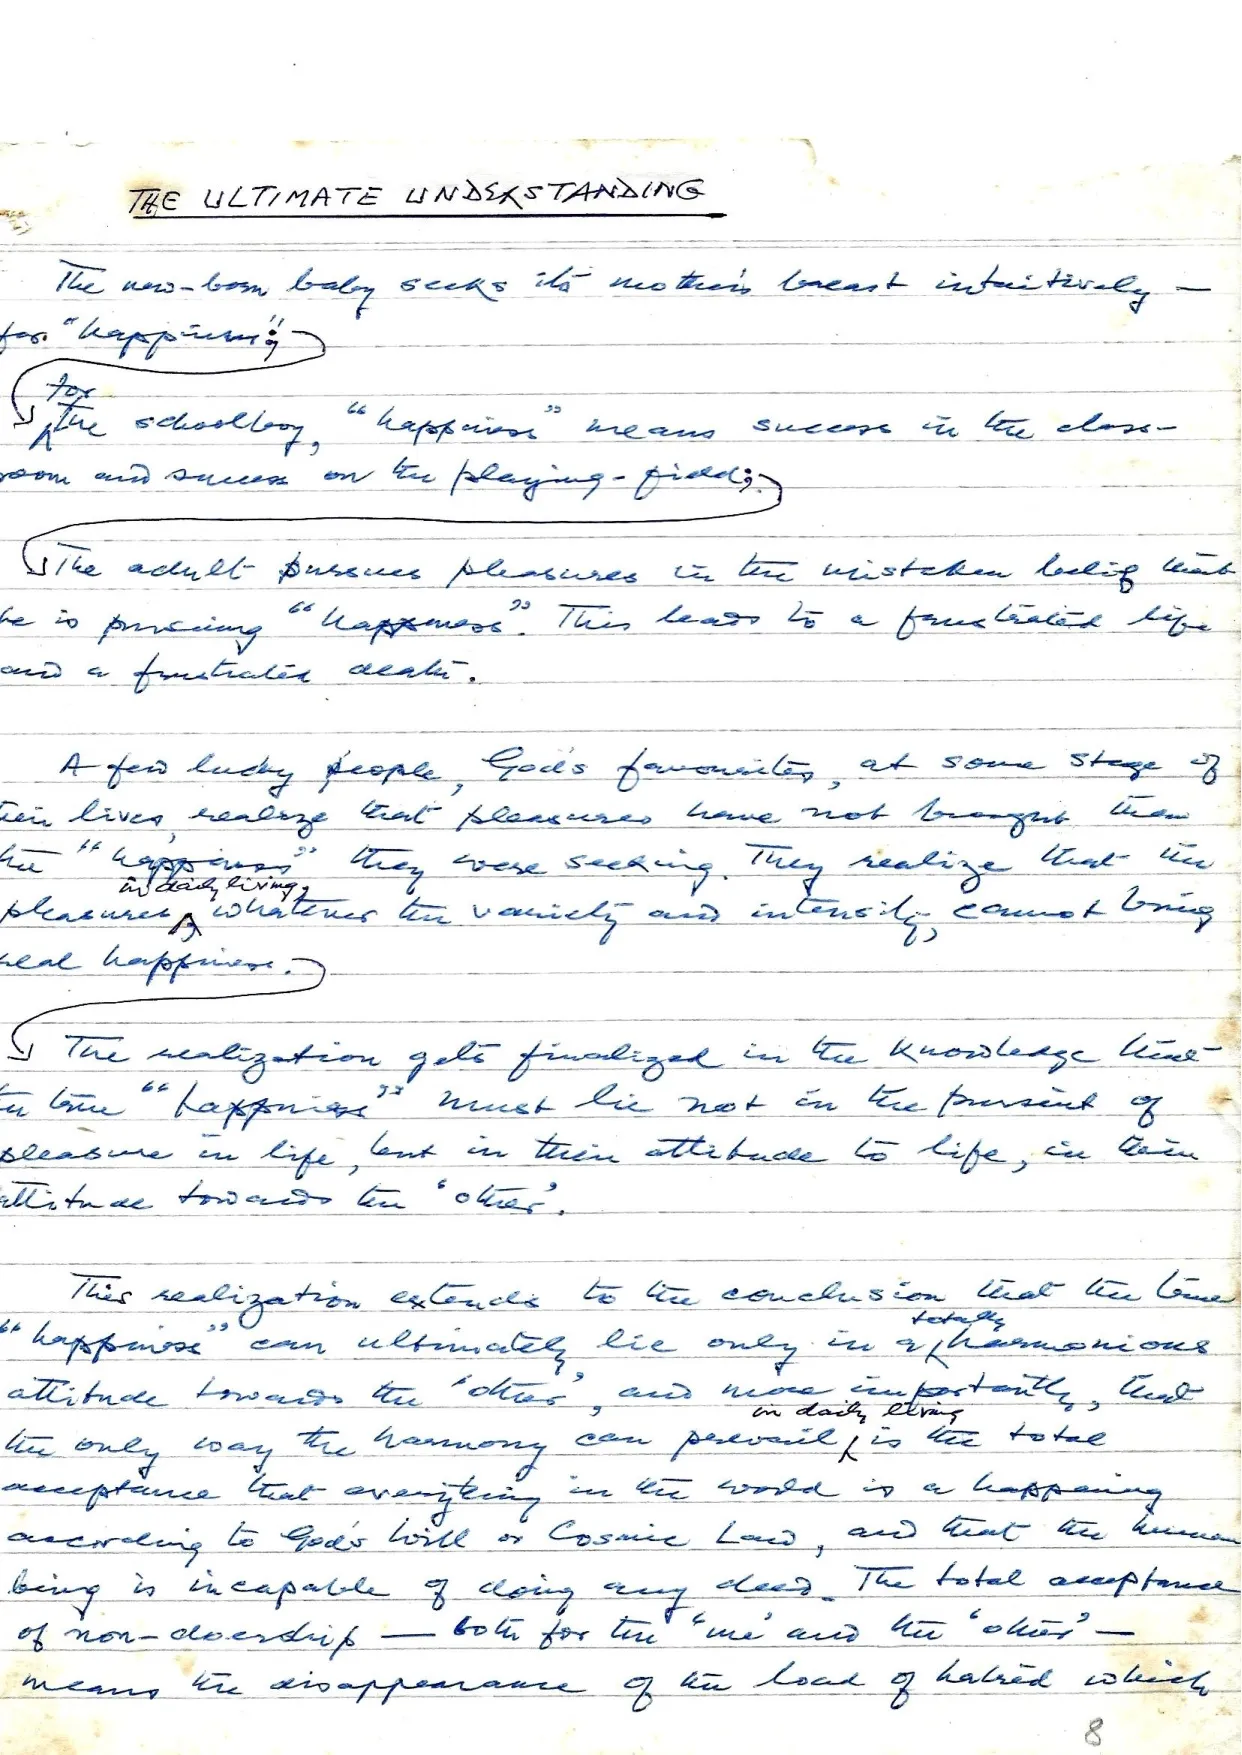 THE ULTIMATE UNDERSTANDING
The new-born baby seeks its mother's breast intuitively —
for "happiness";
for
The schoolboy, "happiness" means success in the class-
room and success on the playing-field;
The adult pursues pleasures in the mistaken belief that
he is pursuing "happiness". This leads to a frustrated life
and a frustrated death.
A few lucky people, God's favourites, at some stage of
their lives, realize that pleasures have not brought them
the "happiness" they were seeking. They realize that the
in daily living,
pleasures, whatever the variety and intensity, cannot bring
real happiness.
The realization gets finalized in the knowledge that
the true "happiness" must lie not in the pursuit of
pleasure in life, but in their attitude to life, in their
attitude towards the 'other'.
This realization extends to the conclusion that the true
totally
"happiness" can ultimately lie only in a harmonious
attitude towards the 'other', and more importantly, that
in daily living
the only way the harmony can prevail, is the total
acceptance that everything in the world is a happening
according to God's Will or Cosmic Law, and that the human
being is incapable of doing any deed. The total acceptance
of non-doership — both for the 'me' and the 'other' —
means the disappearance of the load of hatred which
8